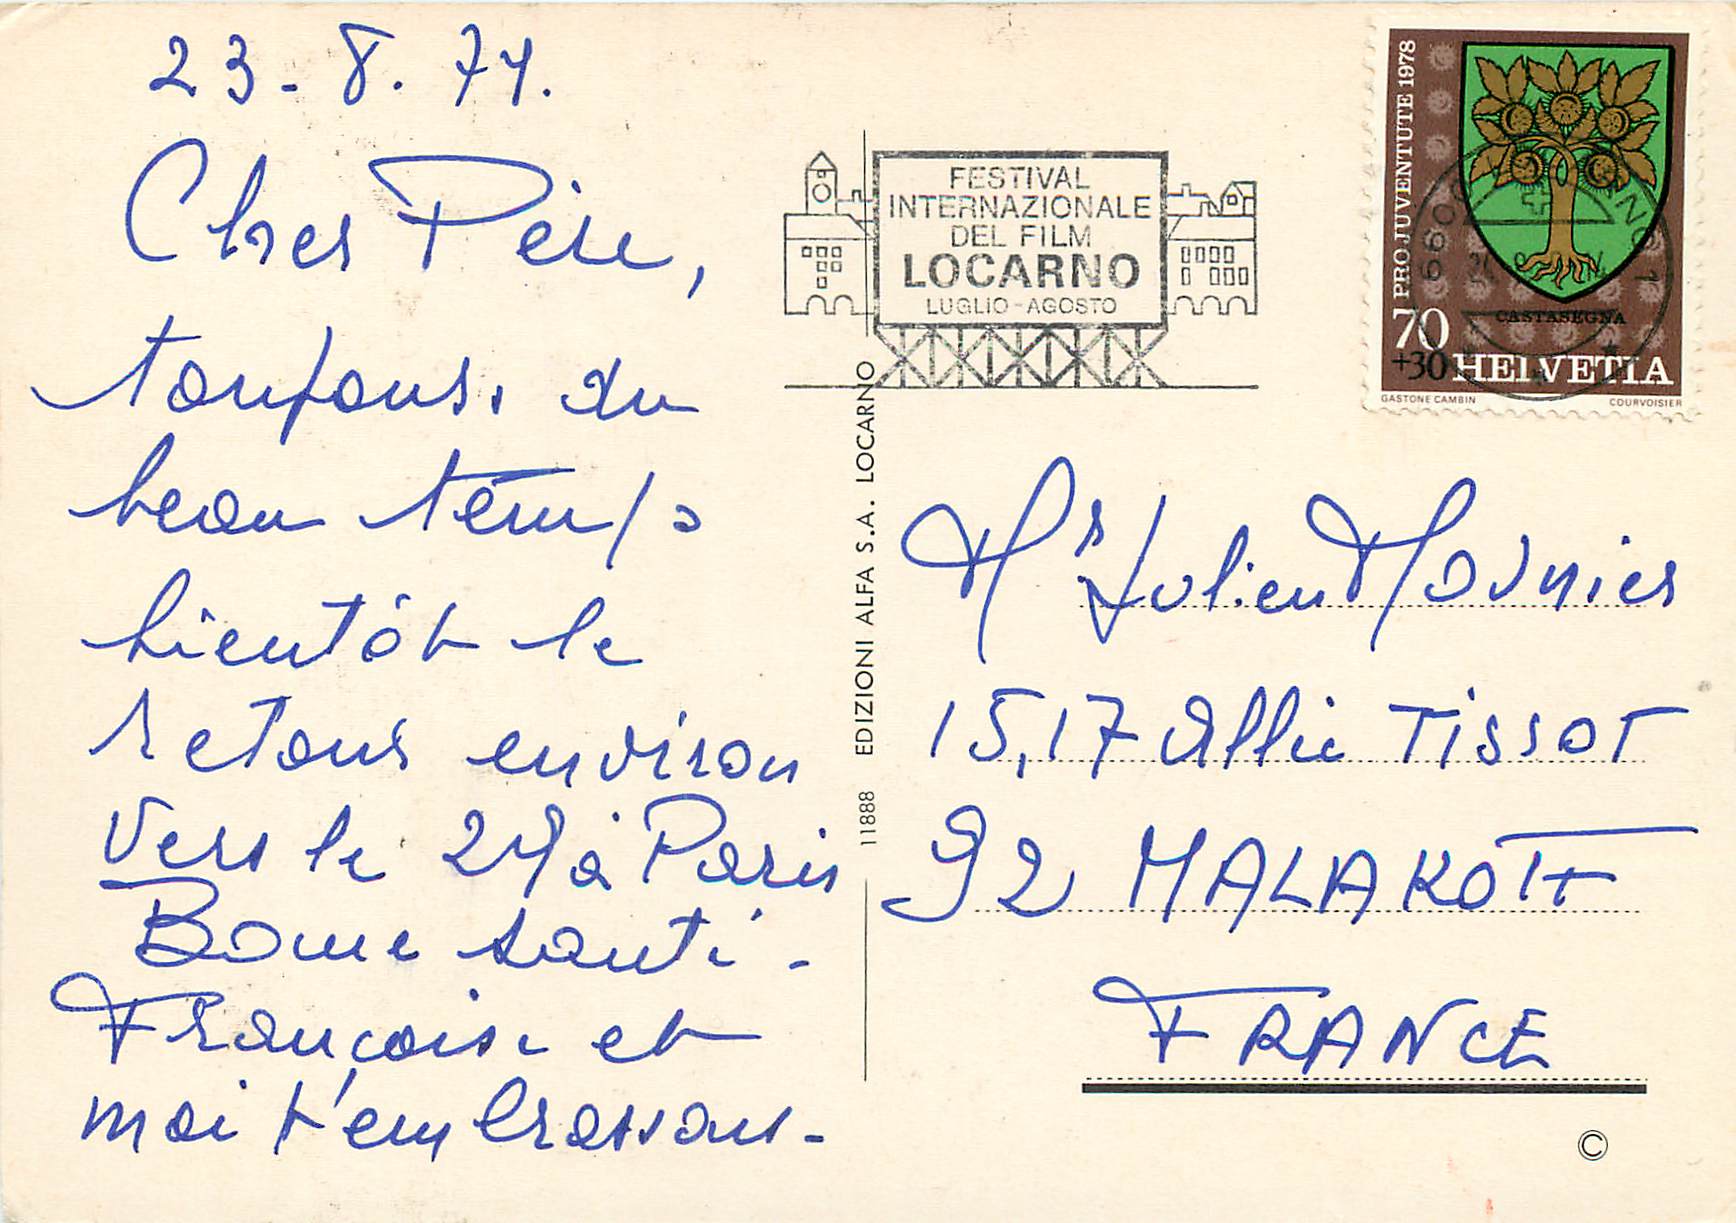 23-8.74.
Cher Père,
toujours du
beau temps
bientôt le
retour environ
vers le 28 à Paris
Bonne santé -
Françoise et
moi t'embrassons -
FESTIVAL
INTERNAZIONALE
DEL FILM
LOCARNO
LUGLIO - AGOSTO
PRO JUVENTUTE 1978
CASTASEGNA
70
+30 HELVETIA
GASTONE CAMBIN COURVOISIER
6600
EDIZIONI ALFA S.A. LOCARNO
11888
Mr Julien Mounier
15,17 Allée TISSOT
92 MALAKOFF
FRANCE
©